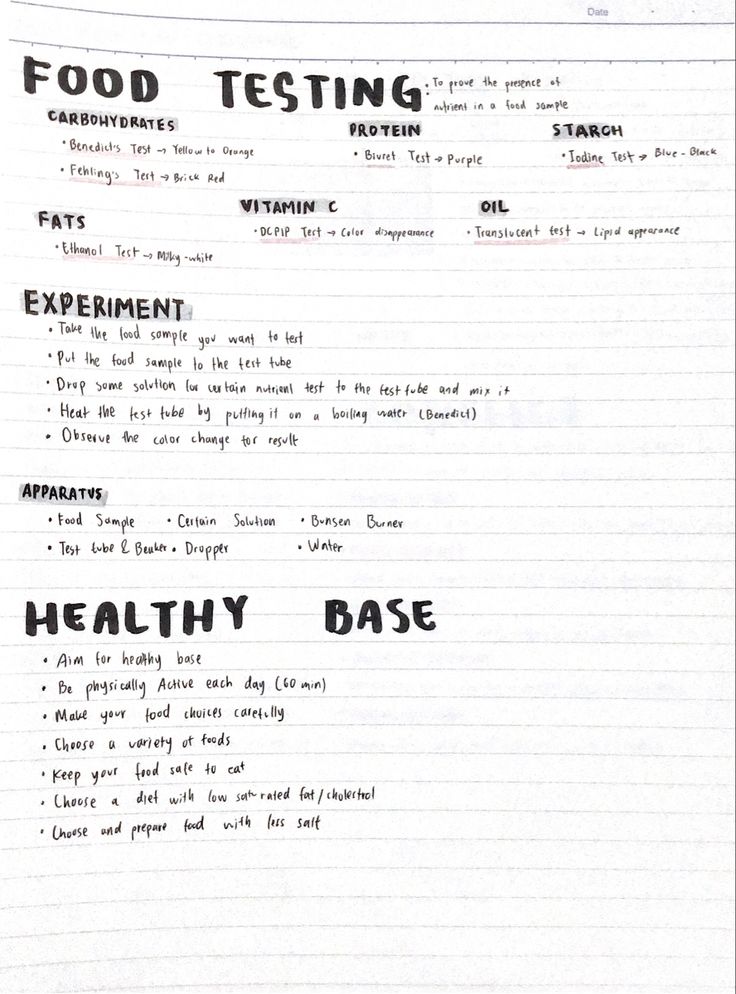 Date
FOOD TESTING: To prove the presence of
nutrient in a food sample
CARBOHYDRATES
• Benedict's Test → Yellow to Orange
• Fehling's Test → Brick Red
PROTEIN
• Biuret Test → Purple
STARCH
• Iodine Test → Blue - Black
FATS
• Ethanol Test → Milky-white
VITAMIN C
• DCPIP Test → Color disappearance
OIL
• Translucent test → Lipid appearance
EXPERIMENT
• Take the food sample you want to test
• Put the food sample to the test tube
• Drop some solution for certain nutrient test to the test tube and mix it
• Heat the test tube by putting it on a boiling water (Benedict)
• Observe the color change for result
APPARATUS
• Food Sample • Certain Solution • Bunsen Burner
• Test tube & Beaker • Dropper • Water
HEALTHY BASE
• Aim for healthy base
• Be physically Active each day (60 min)
• Make your food choices carefully
• Choose a variety of foods
• Keep your food safe to eat
• Choose a diet with low saturated fat/cholestrol
• Choose and prepare food with less salt